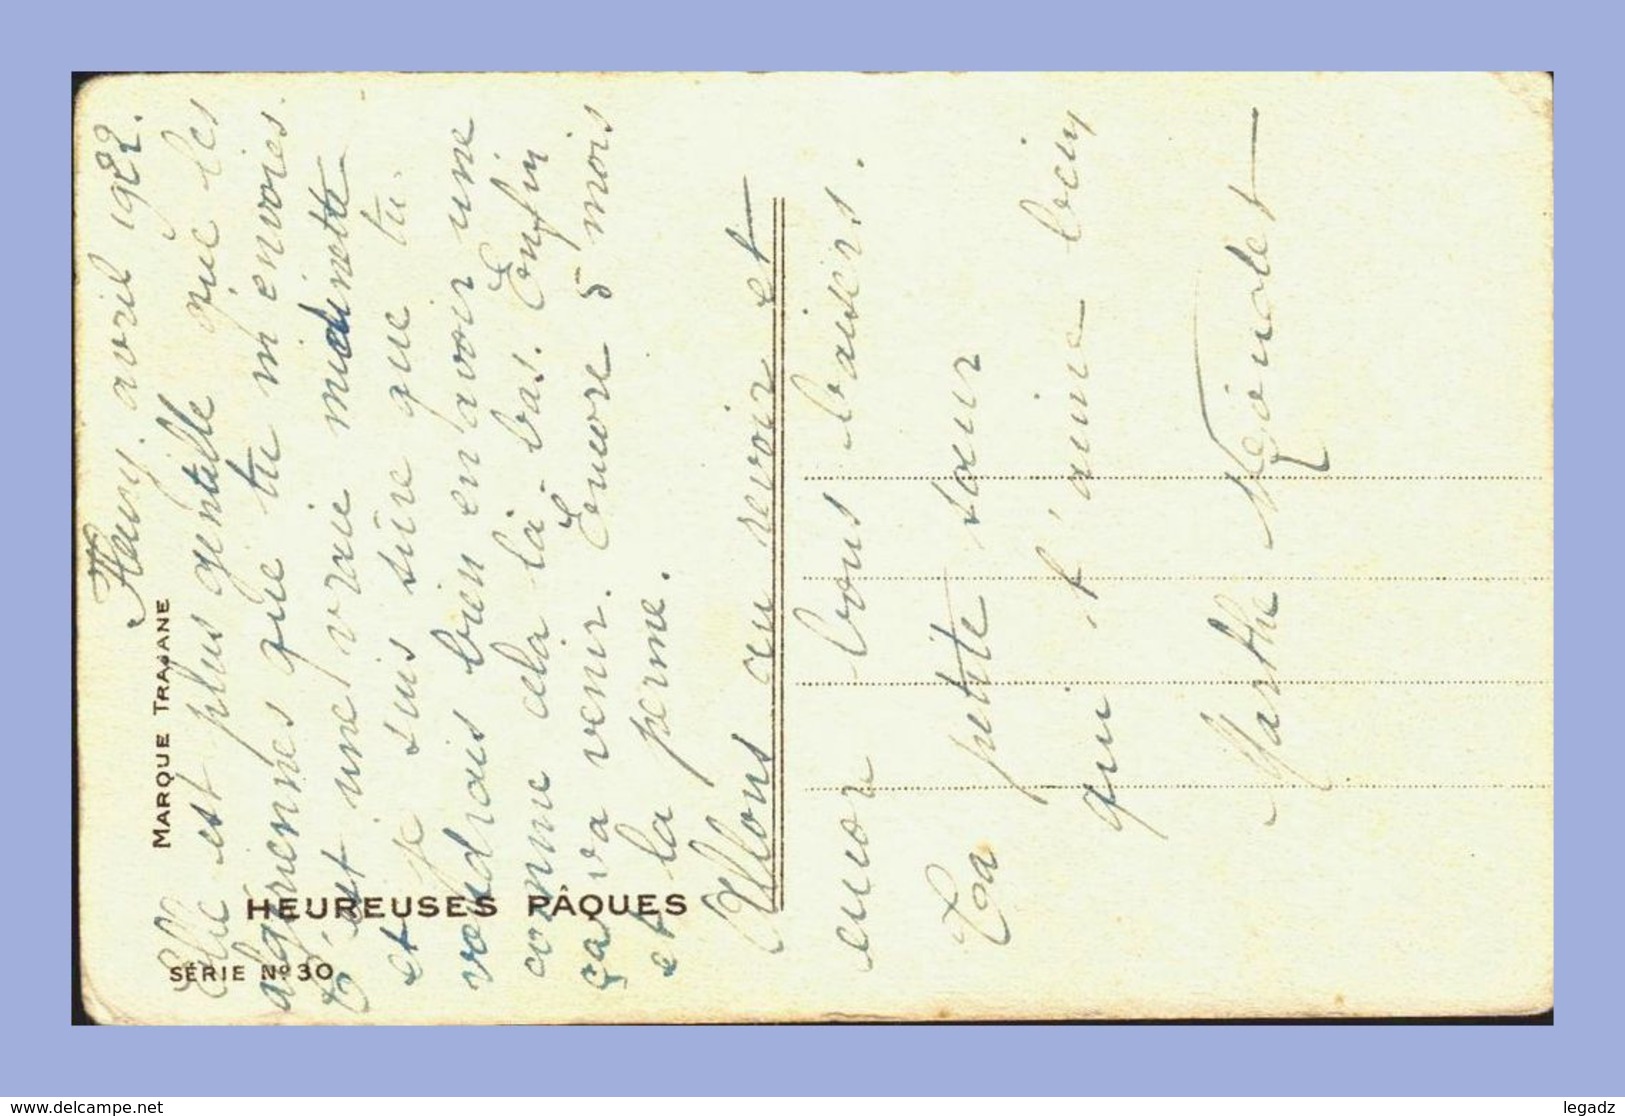 avril 1922.
Elle est plus gentille que les
algériennes que tu m'envoies.
C'est une vraie midinette
et je suis sûre que tu
voudrais bien en avoir une
comme cela là-bas. Enfin
ça va venir. Encore 5 mois
et la perme.
Allons au revoir et
encor bons baisers.
Ta petite sœur
qui t'aime bien
Marthe
MARQUE TRAJANE
HEUREUSES PÂQUES
SÉRIE No 30
www.delcampe.net
legadz